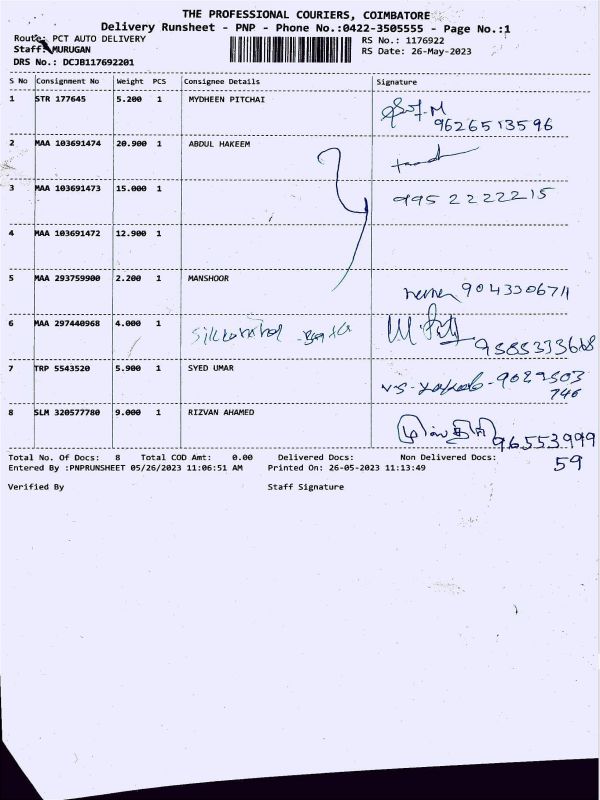 THE PROFESSIONAL COURIERS, COIMBATORE
Delivery Runsheet - PNP - Phone No.:0422-3505555 - Page No.:1
Route: PCT AUTO DELIVERY RS No.: 1176922
Staff: MURUGAN RS Date: 26-May-2023
DRS No.: DCJB117692201
S No Consignment No Weight PCS Consignee Details Signature
1 STR 177645 5.200 1 MYDHEEN PITCHAI
9626513596
2 MAA 103691474 20.900 1 ABDUL HAKEEM
3 MAA 103691473 15.000 1 995 2222215
4 MAA 103691472 12.900 1
5 MAA 293759900 2.200 1 MANSHOOR 9043306711
6 MAA 297440968 4.000 1
9585333668
7 TRP 5543520 5.900 1 SYED UMAR
746
8 SLM 320577780 9.000 1 RIZVAN AHAMED
96553999
59
Total No. Of Docs: 8 Total COD Amt: 0.00 Delivered Docs: Non Delivered Docs:
Entered By :PNPRUNSHEET 05/26/2023 11:06:51 AM Printed On: 26-05-2023 11:13:49
Verified By Staff Signature